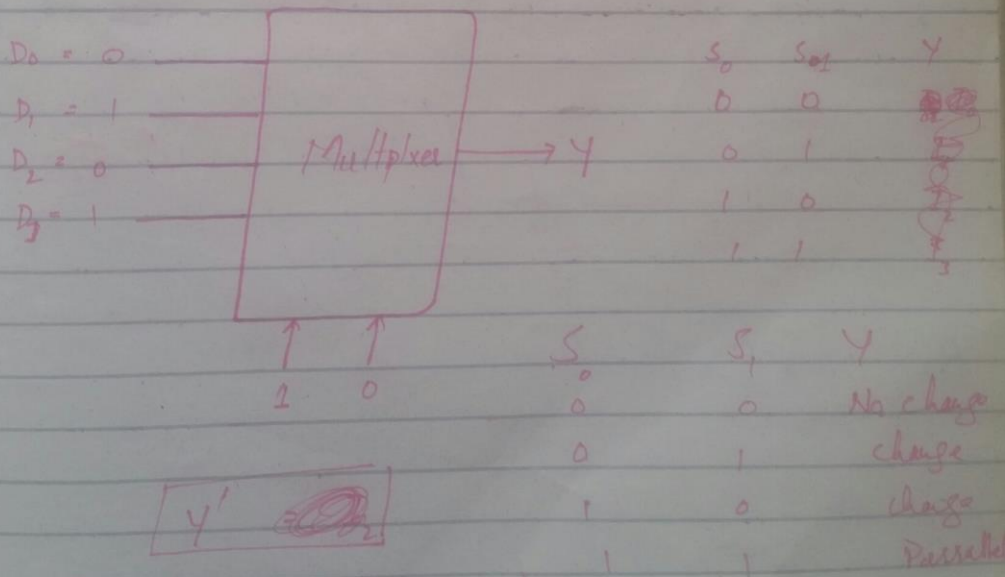 D0 = 0
D1 = 1
D2 = 0
D3 = 1
Multplxer
Y
1 0
Y'
S0 S1 Y
0 0
0 1
1 0
1 1
S0 S1 Y
0 0 No change
0 1 change
1 0 change
1 1 Parrallel